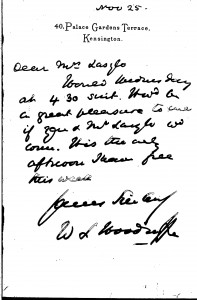 Nov 25.
40, Palace Gardens Terrace,
Kensington.
Dear Mrs Laszlo
Would Wednesday
at 4.30 suit. It wd be
a great pleasure to me
if you & Mr Laszlo wd
come. It is the only
afternoon I have free
this week
Yours sincerely
W L Woodroffe